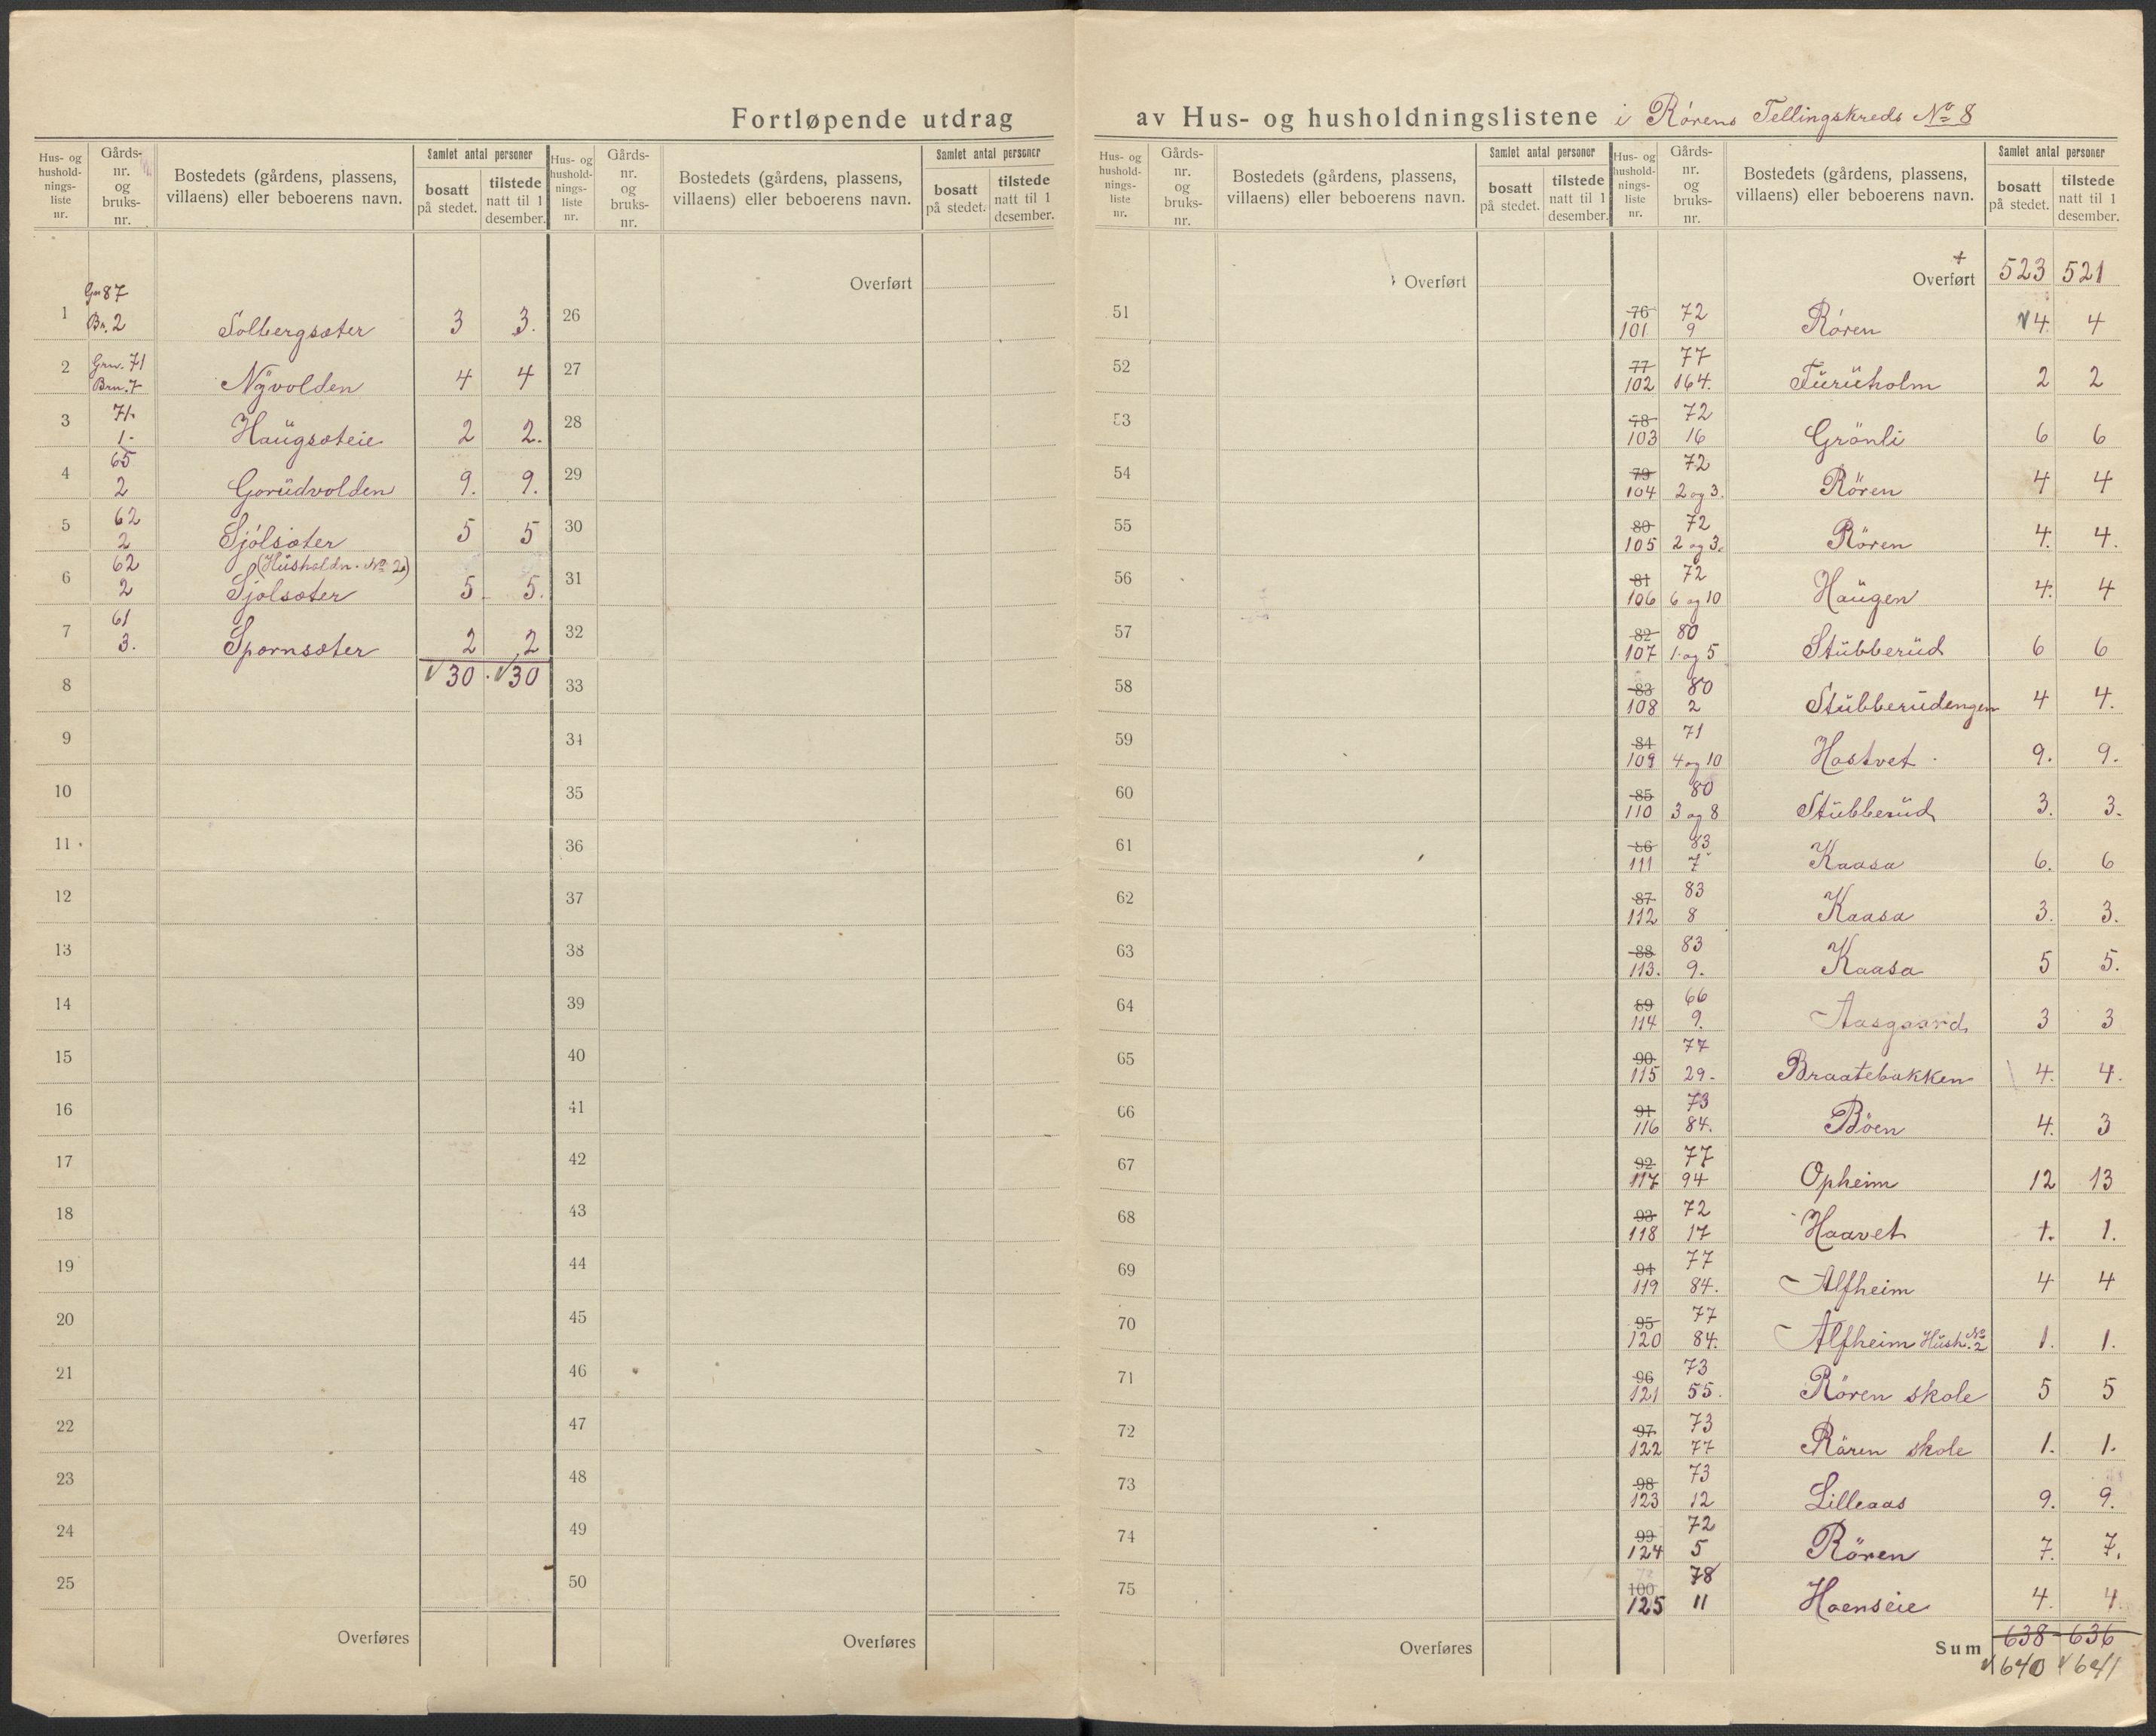 Fortløpende utdrag av Hus- og husholdningslistene i Rørens Tellingskreds No 8
Hus- og husholdnings-liste nr. | Gårds-nr. og bruks-nr. | Bostedets (gårdens, plassens, villaens) eller beboerens navn. | Samlet antal personer | bosatt på stedet. | tilstede natt til 1 desember.
1 | Gn 87 Bn. 2 | Solbergsæter | 3 | 3.
2 | Grn. 71 Brn. 7 | Nÿvolden | 4 | 4
3 | 71. 1. | Haügsæteie | 2 | 2.
4 | 65 2 | Gorüdvolden | 9. | 9.
5 | 62 2 | Sjölsæter | 5 | 5
6 | 62 2 | (Hüsholdn. No 2) Sjölsæter | 5. | 5.
7 | 61 3. | Spornsæter | 2 | 2
8 | 30. | 30
9
10
11
12
13
14
15
16
17
18
19
20
21
22
23
24
25
Overføres
Hus- og husholdnings-liste nr. | Gårds-nr. og bruks-nr. | Bostedets (gårdens, plassens, villaens) eller beboerens navn. | Samlet antal personer | bosatt på stedet. | tilstede natt til 1 desember.
Overført
26
27
28
29
30
31
32
33
34
35
36
37
38
39
40
41
42
43
44
45
46
47
48
49
50
Overføres
Hus- og husholdnings-liste nr. | Gårds-nr. og bruks-nr. | Bostedets (gårdens, plassens, villaens) eller beboerens navn. | Samlet antal personer | bosatt på stedet. | tilstede natt til 1 desember.
Overført
51
52
53
54
55
56
57
58
59
60
61
62
63
64
65
66
67
68
69
70
71
72
73
74
75
Overføres
Hus- og husholdnings-liste nr. | Gårds-nr. og bruks-nr. | Bostedets (gårdens, plassens, villaens) eller beboerens navn. | Samlet antal personer | bosatt på stedet. | tilstede natt til 1 desember.
+ Overført | 523 | 521
76 101 | 72 9 | Røren | 4. | 4
77 102 | 77 164. | Fürüholm | 2 | 2
78 103 | 72 16 | Grönli | 6 | 6
79 104 | 72 2 og 3. | Rören | 4 | 4
80 105 | 72 2 og 3. | Rören | 4. | 4.
81 106 | 72 6 og 10 | Haügen | 4. | 4
82 107 | 80 1 og 5 | Stübberüd | 6 | 6
83 108 | 80 2 | Stübberüdengen | 4 | 4.
84 109 | 71 4 og 10 | Hostvet | 9. | 9.
85 110 | 80 3 og 8 | Stübberüd | 3. | 3.
86 111 | 83 7 | Kaasa | 6. | 6
87 112 | 83 8 | Kaasa | 3. | 3.
88 113. | 83 9. | Kaasa | 5 | 5.
89 114 | 66 9. | Aasgaard | 3 | 3
90 115 | 77 29. | Braatebakken | 4. | 4.
91 116 | 73 84. | Böen | 4. | 3
92 117 | 77 94 | Opheim | 12 | 13
93 118 | 72 17 | Haavet | 1. | 1.
94 119 | 77 84. | Alfheim | 4 | 4
95 120 | 77 84. | Alfheim Hüsh. No 2 | 1. | 1.
96 121 | 73 55. | Rören skole | 5 | 5
97 122 | 73 77 | Rören skole | 1. | 1.
98 123 | 73 12 | Lilleaas | 9. | 9.
99 124 | 72 5 | Rören | 7. | 7.
100 125 | 78 11 | Hoenseie | 4. | 4.
Sum | 638 | 636
640 | 641